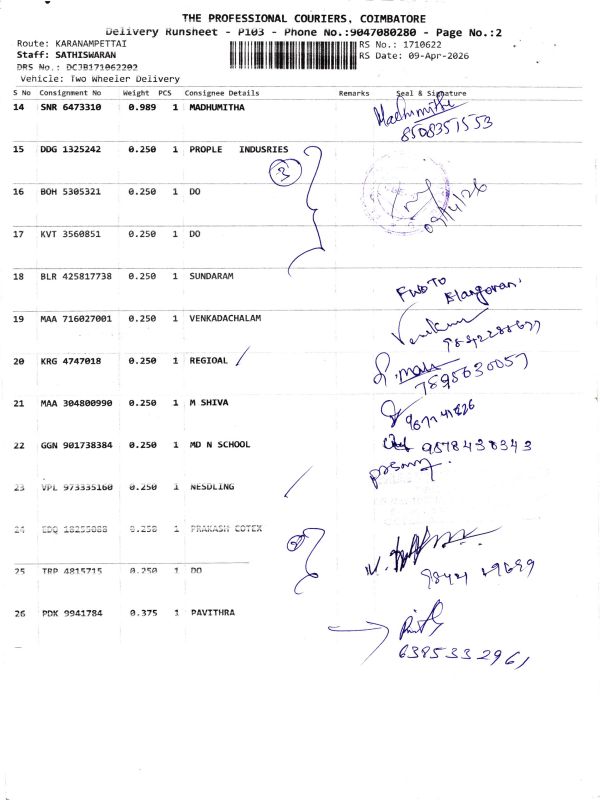 THE PROFESSIONAL COURIERS, COIMBATORE
Delivery Runsheet - P103 - Phone No.:9047080280 - Page No.:2
Route: KARANAMPETTAI
RS No.: 1710622
Staff: SATHISWARAN
RS Date: 09-Apr-2026
DRS No.: DCJB171062202
Vehicle: Two Wheeler Delivery
S No Consignment No Weight PCS Consignee Details Remarks Seal & Signature
14 SNR 6473310 0.989 1 MADHUMITHA
Madhumitha
8508351553
15 DDG 1325242 0.250 1 PROPLE INDUSRIES
3
16 BOH 5305321 0.250 1 DO
09/4/26
17 KVT 3560851 0.250 1 DO
18 BLR 425817738 0.250 1 SUNDARAM
FWD TO
Elangovan.
19 MAA 716027001 0.250 1 VENKADACHALAM
20 KRG 4747018 0.250 1 REGIOAL
7895630057
21 MAA 304800990 0.250 1 M SHIVA
22 GGN 901738384 0.250 1 MD N SCHOOL
9878438343
23 VPL 973335160 0.250 1 NESDLING
24 EDQ 18255088 0.250 1 PRAKASH COTEX
25 TRP 4815715 0.250 1 DO
26 PDK 9941784 0.375 1 PAVITHRA
6385332961